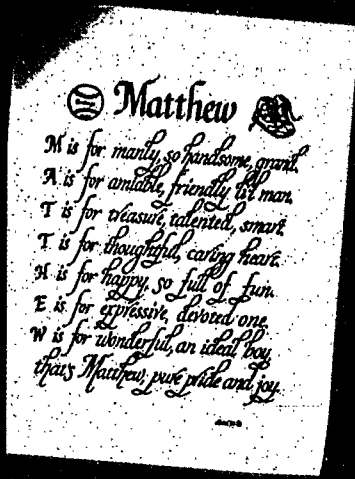 Matthew
M is for manly, so handsome, grand.
A is for amiable, friendly lil man.
T is for treasure, talented, smart.
T is for thoughtful, caring heart.
H is for happy, so full of fun.
E is for expressive, devoted one.
W is for wonderful, an ideal boy
that's Matthew, pure pride and joy.